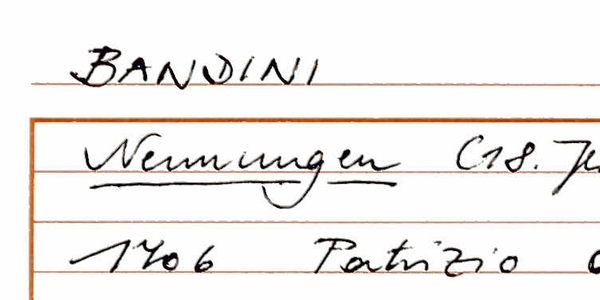 BANDINI
Nennungen (18. J
1706 Patrizio